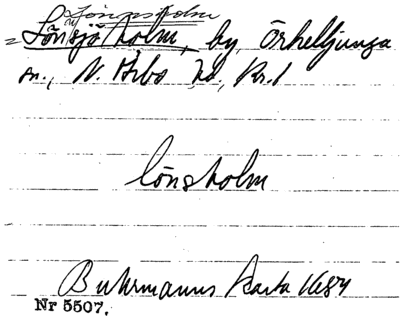 Lönsholm
= Lönsjöholm, by, Örkelljunga
sn., N. Åsbo hd, Kr. l
lönsholm
Buhrmanns karta 1684
Nr 5507.